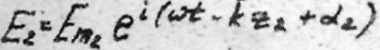 E₂ = Eₘ₂ e^{i(ωt - kz₂ + α₂)}